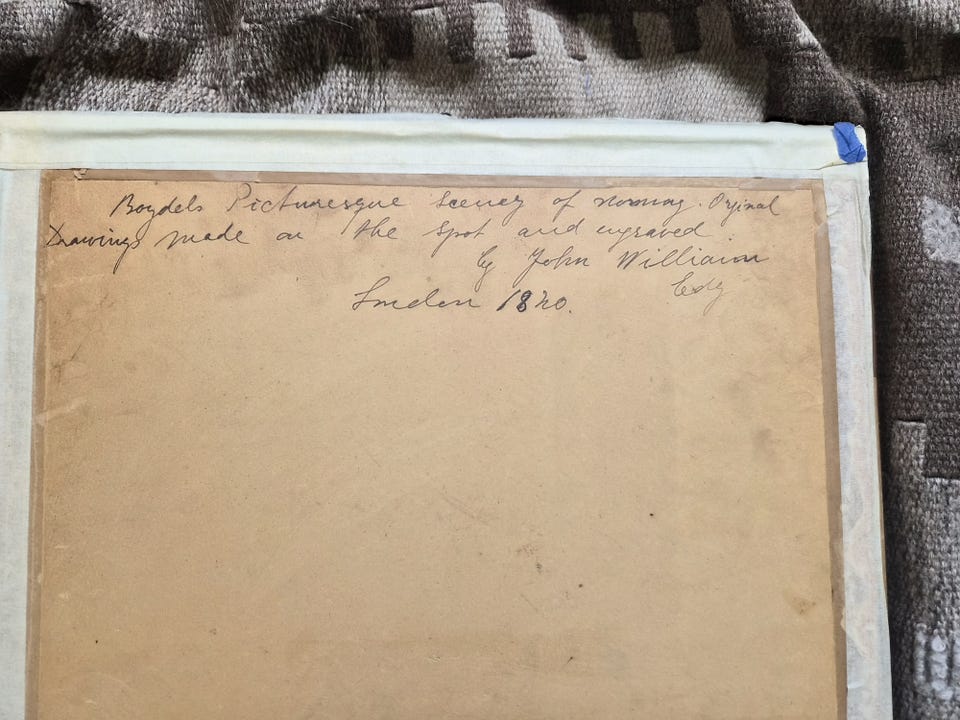 Boydels Picturesque Scenery of Norway. Orginal
Drawings made on the Spot and engraved
by John William
Edy
London 1820.